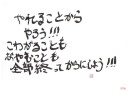 やれることから
やろう!!!
こわがることも
なやむことも
全部終ってからにしよう!!!